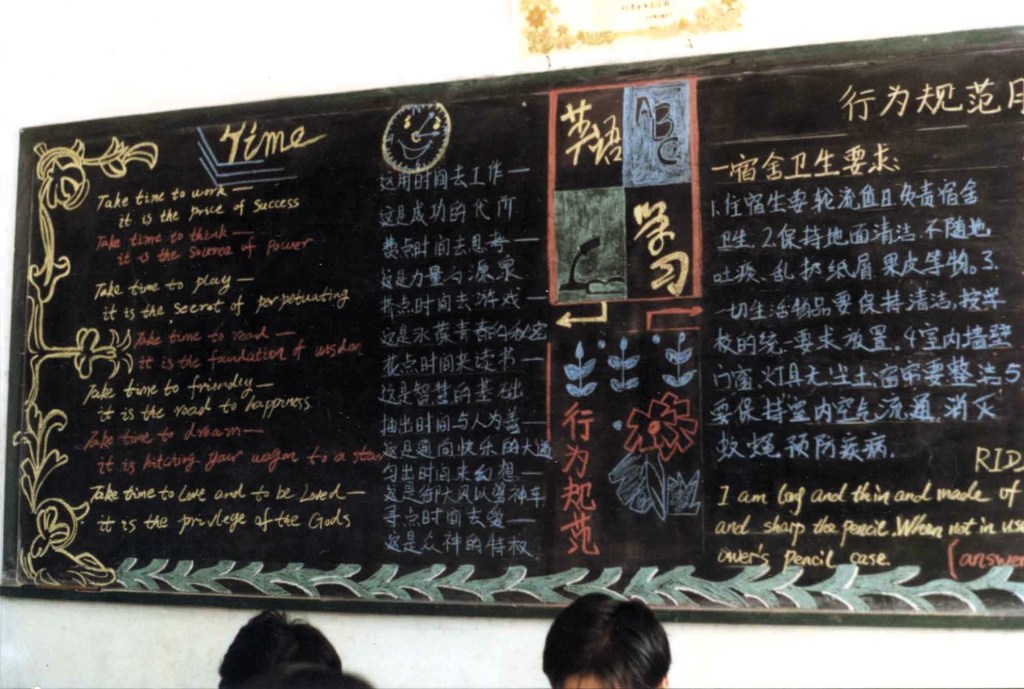 Time
Take time to work—
it is the price of success
Take time to think—
it is the source of Power
Take time to play—
it is the secret of perpetuating
Take time to read—
it is the foundation of wisdom
Take time to friendly—
it is the road to happiness
Take time to dream—
it is hitching your wagon to a star
Take time to Love and to be Loved—
it is the privilege of the Gods
运用时间去工作—
这是成功的代价
费点时间去思考—
这是力量的源泉
挤点时间去游戏—
这是永葆青春的秘密
花点时间来读书—
这是智慧的基础
抽出时间与人为善—
这是通向快乐的大道
匀出时间来幻想—
这是
寻点时间去爱—
这是众神的特权
英语
ABC
学习
行为规范
行为规范
一宿舍卫生要求:
1.住宿生要轮流值日负责宿舍
卫生.2.保持地面清洁.不随地
吐痰、乱扔纸屑果皮等物。3.
一切生活物品要保持清洁,按学
校的统一要求放置.4室内墙壁
门窗.灯具无尘土窗帘要整洁5
要保持室内空气流通,消灭
蚊蝇预防疾病.
RID
I am long and thin and made of
and sharp the pencil. When not in use
ower's pencil case.
(answer